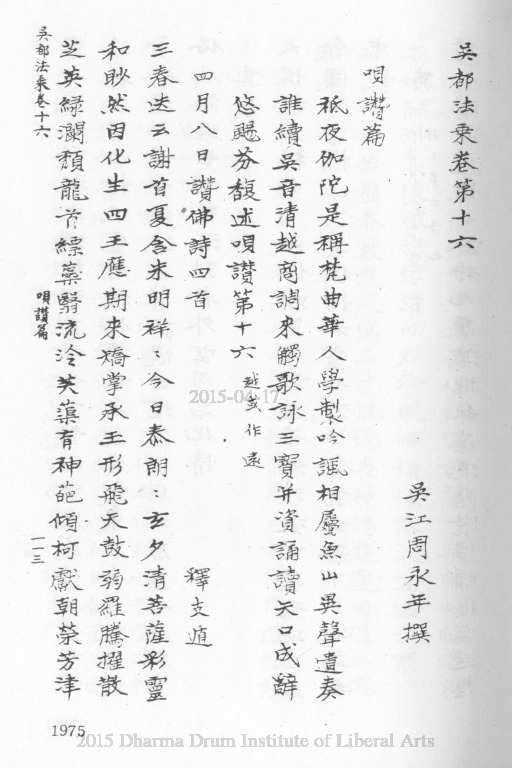 吳都法乘卷第十六
吳江周永年撰
唄讚篇
祇夜伽陀是稱梵曲華人學製吟諷相屬魚山異聲遺奏
誰續吳音清越商調來觸歌詠三寶并資誦讀矢口成辭
悠颺芬馥述唄讚第十六
越或作遠
四月八日讚佛詩四首
釋支遁
三春迭云謝首夏含朱明祥祥今日泰朗朗玄夕清菩薩彩靈
和眇然因化生四王應期來矯掌承玉形飛天鼓弱羅騰擢散
芝英綠瀾頹龍首縹蘂翳流泠芙蕖育神葩傾柯獻朝榮芳津
吳都法乘卷十六
唄讚篇
一一三
1975
2015-04-17
2015 Dharma Drum Institute of Liberal Arts